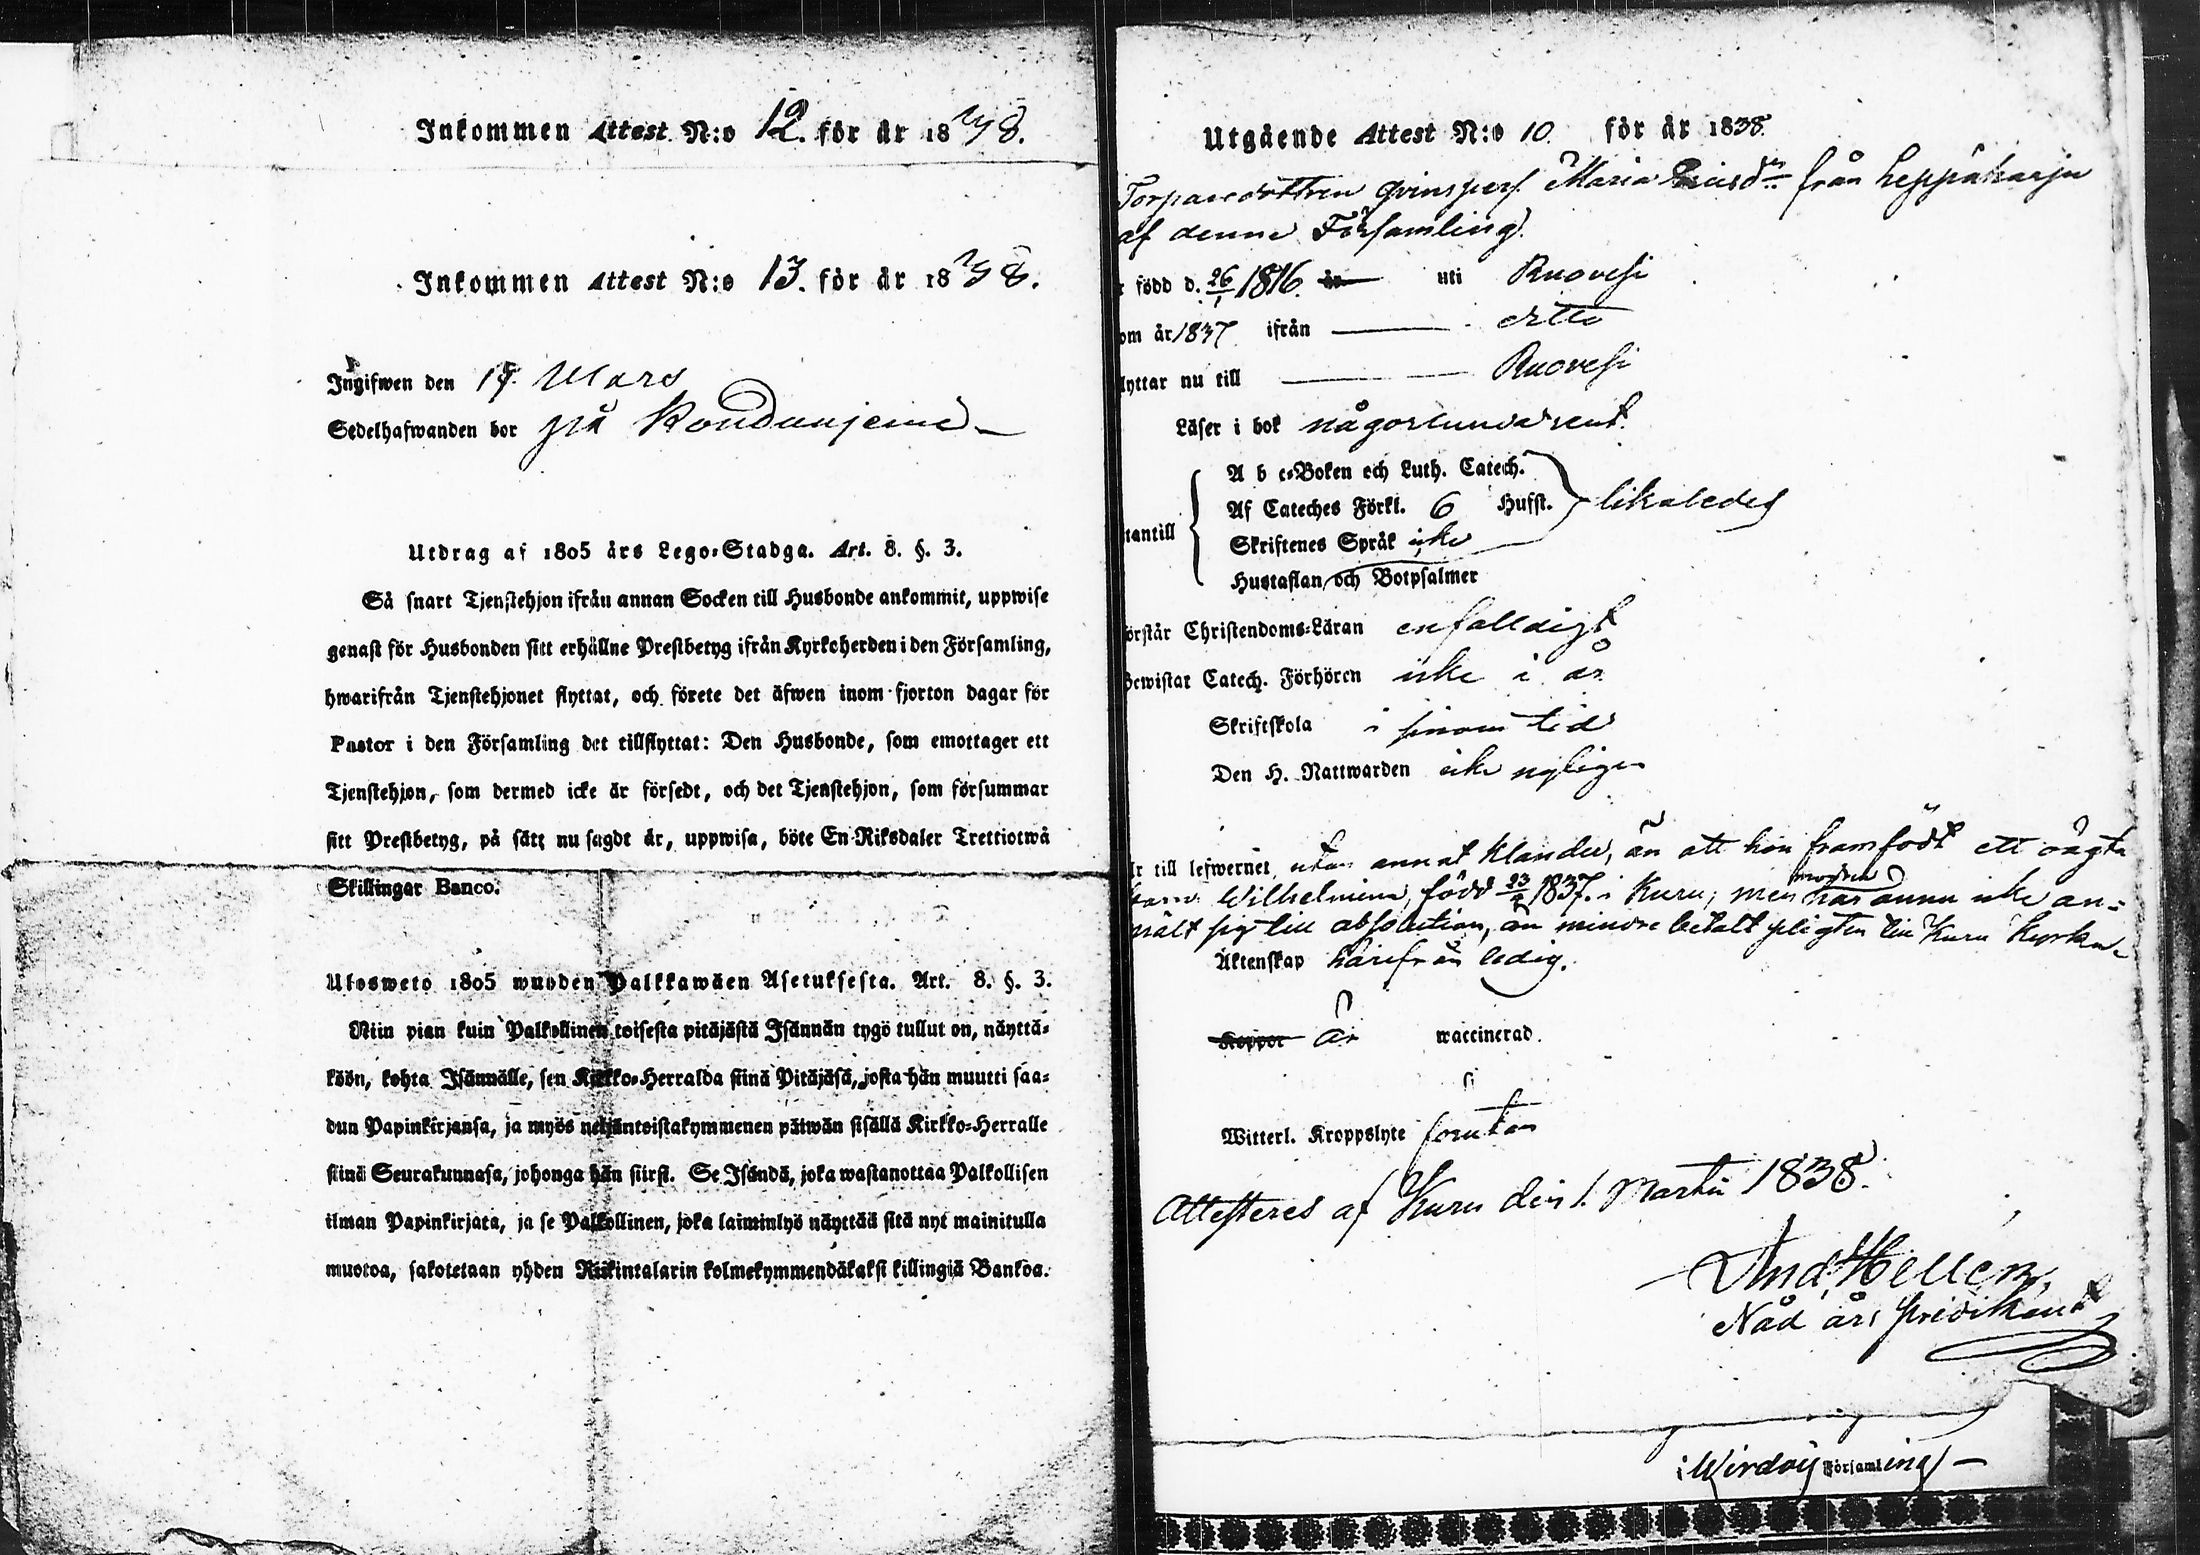 Inkommen Attest N:o 12. för år 1838.
Inkommen Attest N:o 13. för år 1838.
Ingifwen den 19. Mars
Sedelhafwanden bor på
Utdrag af 1805 års Lego-Stadga. Art. 8. §. 3.
Så snart Tjenstehjon ifrån annan Socken till Husbonde ankommit, uppwise
genast för Husbonden sitt erhållne Prestbetyg ifrån Kyrkoherden i den Församling,
hwarifrån Tjenstehjonet flyttat, och förete det äfwen inom fjorton dagar för
Pastor i den Församling det tillflyttat: Den Husbonde, som emottager ett
Tjenstehjon, som dermed icke är försedt, och det Tjenstehjon, som försummar
sitt Prestbetyg, på sätt nu sagdt är, uppwisa, böte En Riksdaler Trettiotwå
Skillingar Banco.
Ulosweto 1805 wuoden Palkkawäen Asetuksesta. Art. 8. §. 3.
Niin pian kuin Palkollinen toisesta pitäjästä Isännän tygö tullut on, näyttä-
köön, kohta Isännälle, sen Kirkko-Herralda siinä Pitäjäsä, josta hän muutti saa-
dun Papinkirjansa, ja myös neljäntoistakymmenen päiwän sisällä Kirkko-Herralle
siinä Seurakunnasa, johonga hän siirsi. Se Isändä, joka wastanottaa Palkollisen
ilman Papinkirjata, ja se Palkollinen, joka laiminlyö näyttää sitä nyt mainitulla
muotoa, sakotetaan yhden Riikintalarin kolmekymmendäkaksi killingiä Bankoa.
Utgående Attest N:o 10. för år 1838.
Torparedottren qvinspers. Maria från Leppäharju
af denne Församling.
r född d. 26/1 1816. år uti Ruovesi
om år 1837 ifrån ditto
lyttar nu till Ruovesi
Läser i bok någorlunda rent.
A b c-Boken och Luth. Catech.
Af Cateches Förkl. 6 Hufst. likaledes
tantill
Skriftenes Språk icke
Hustaflan och Botpsalmer
örstår Christendoms-Läran enfalldigt
Bewistat Catech. Förhören icke i år
Skriftskola i sinom tid
Den H. Nattwarden icke nyligen
Är till lefwernet, utan annat klander, än att hon framfödt ett oägta
barn Wilhelmina, född 23/ 1837. i Kuru; men modren har ännu icke an-
mält sig till absolution, än mindre betalt pligten till Kuru Kyrka.
Äktenskap härifrån ledig.
Koppor är waccinerad.
Witterl. Kroppslyte förutan
Attesteres af Kuru den 1. Martii 1838.
And. Hellén,
Nåd års predikant
i Wirdois Församling